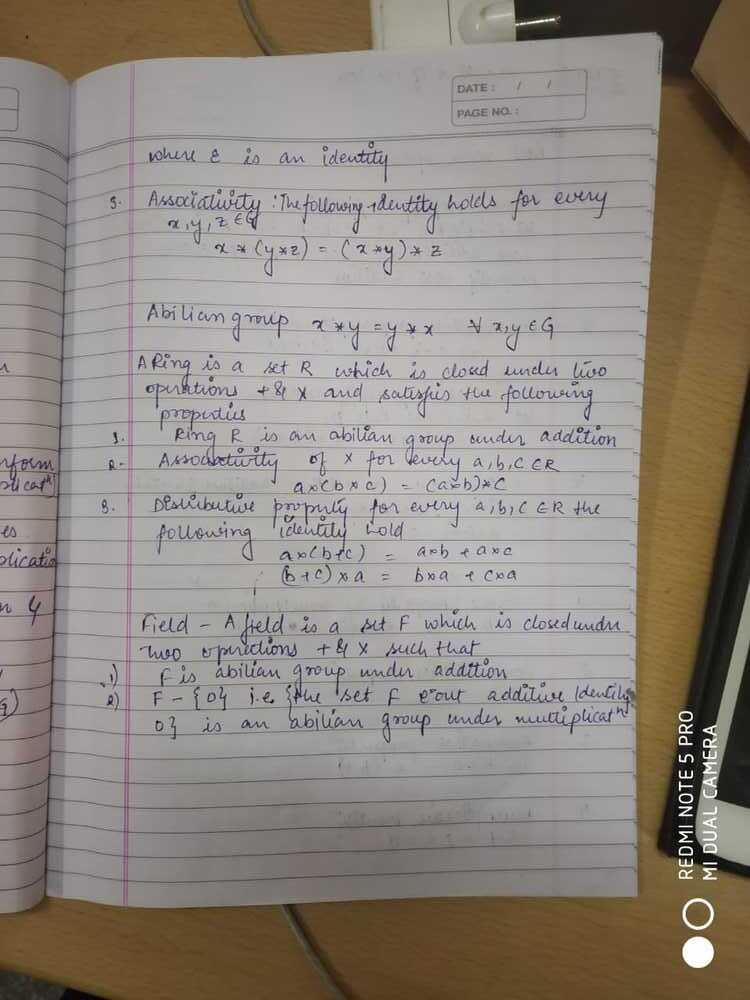 DATE : / /
PAGE NO. :
where ε is an identity
3. Associativity : The following identity holds for every
x, y, z ∈ G
x * (y * z) = (x * y) * z
Abilian group x * y = y * x ∀ x, y ∈ G
A Ring is a set R which is closed under two
operations + & x and satisfies the following
properties
1. Ring R is an abilian group under addition
2. Associativity of x for every a, b, c ∈ R
a x (b x c) = (a x b) x c
3. Distributive property for every a, b, c ∈ R the
following identity hold
a x (b + c) = a x b + a x c
(b + c) x a = b x a + c x a
Field - A field is a set F which is closed under
two operations + & x such that
1) F is abilian group under addition
2) F - {0} i.e. {the set F out additive Identity
0} is an abilian group under multiplicatⁿ
nform
plicatⁿ
es
plication
n 4
REDMI NOTE 5 PRO
MI DUAL CAMERA